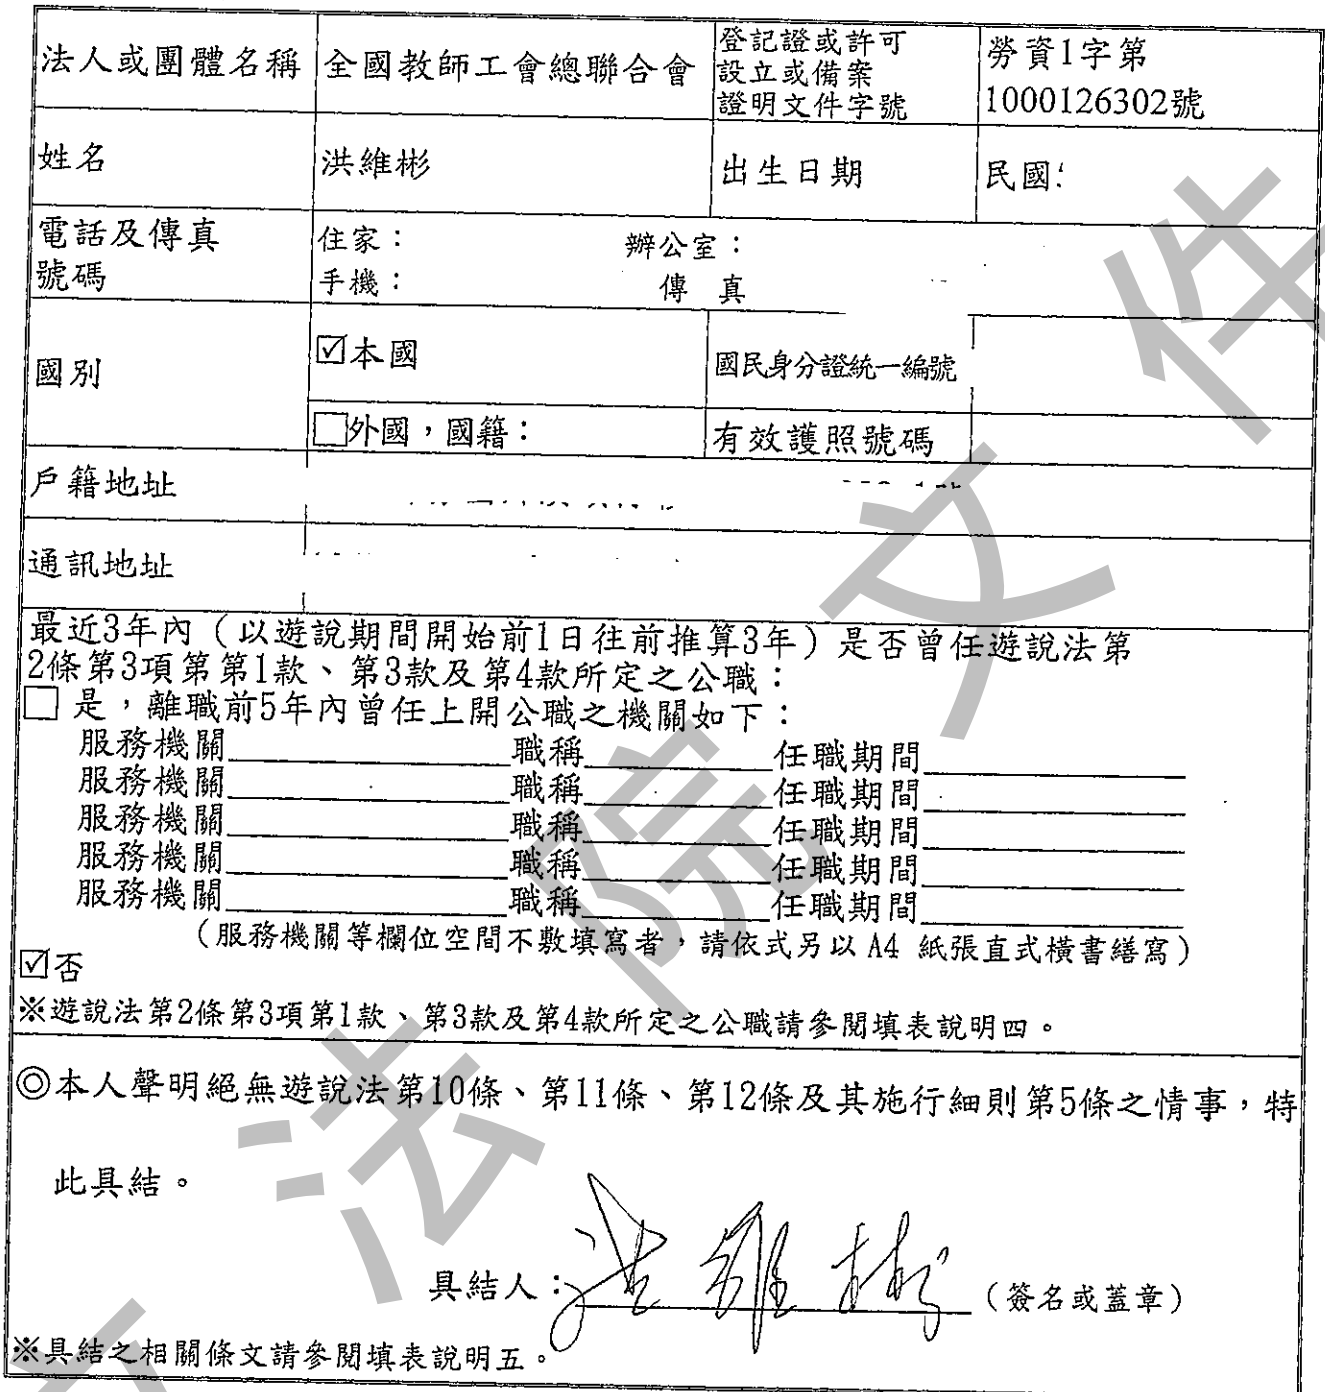 法人或團體名稱 全國教師工會總聯合會 登記證或許可設立或備案證明文件字號 勞資1字第1000126302號
姓名 洪維彬 出生日期 民國
電話及傳真號碼 住家： 辦公室：
手機： 傳 真
國別 ☑本國 國民身分證統一編號
□外國，國籍： 有效護照號碼
戶籍地址
通訊地址
最近3年內（以遊說期間開始前1日往前推算3年）是否曾任遊說法第
2條第3項第第1款、第3款及第4款所定之公職：
□ 是，離職前5年內曾任上開公職之機關如下：
服務機關 職稱 任職期間
服務機關 職稱 任職期間
服務機關 職稱 任職期間
服務機關 職稱 任職期間
服務機關 職稱 任職期間
（服務機關等欄位空間不敷填寫者，請依式另以 A4 紙張直式橫書繕寫）
☑否
※遊說法第2條第3項第1款、第3款及第4款所定之公職請參閱填表說明四。
◎本人聲明絕無遊說法第10條、第11條、第12條及其施行細則第5條之情事，特
此具結。
具結人：洪維彬（簽名或蓋章）
※具結之相關條文請參閱填表說明五。
法院文件